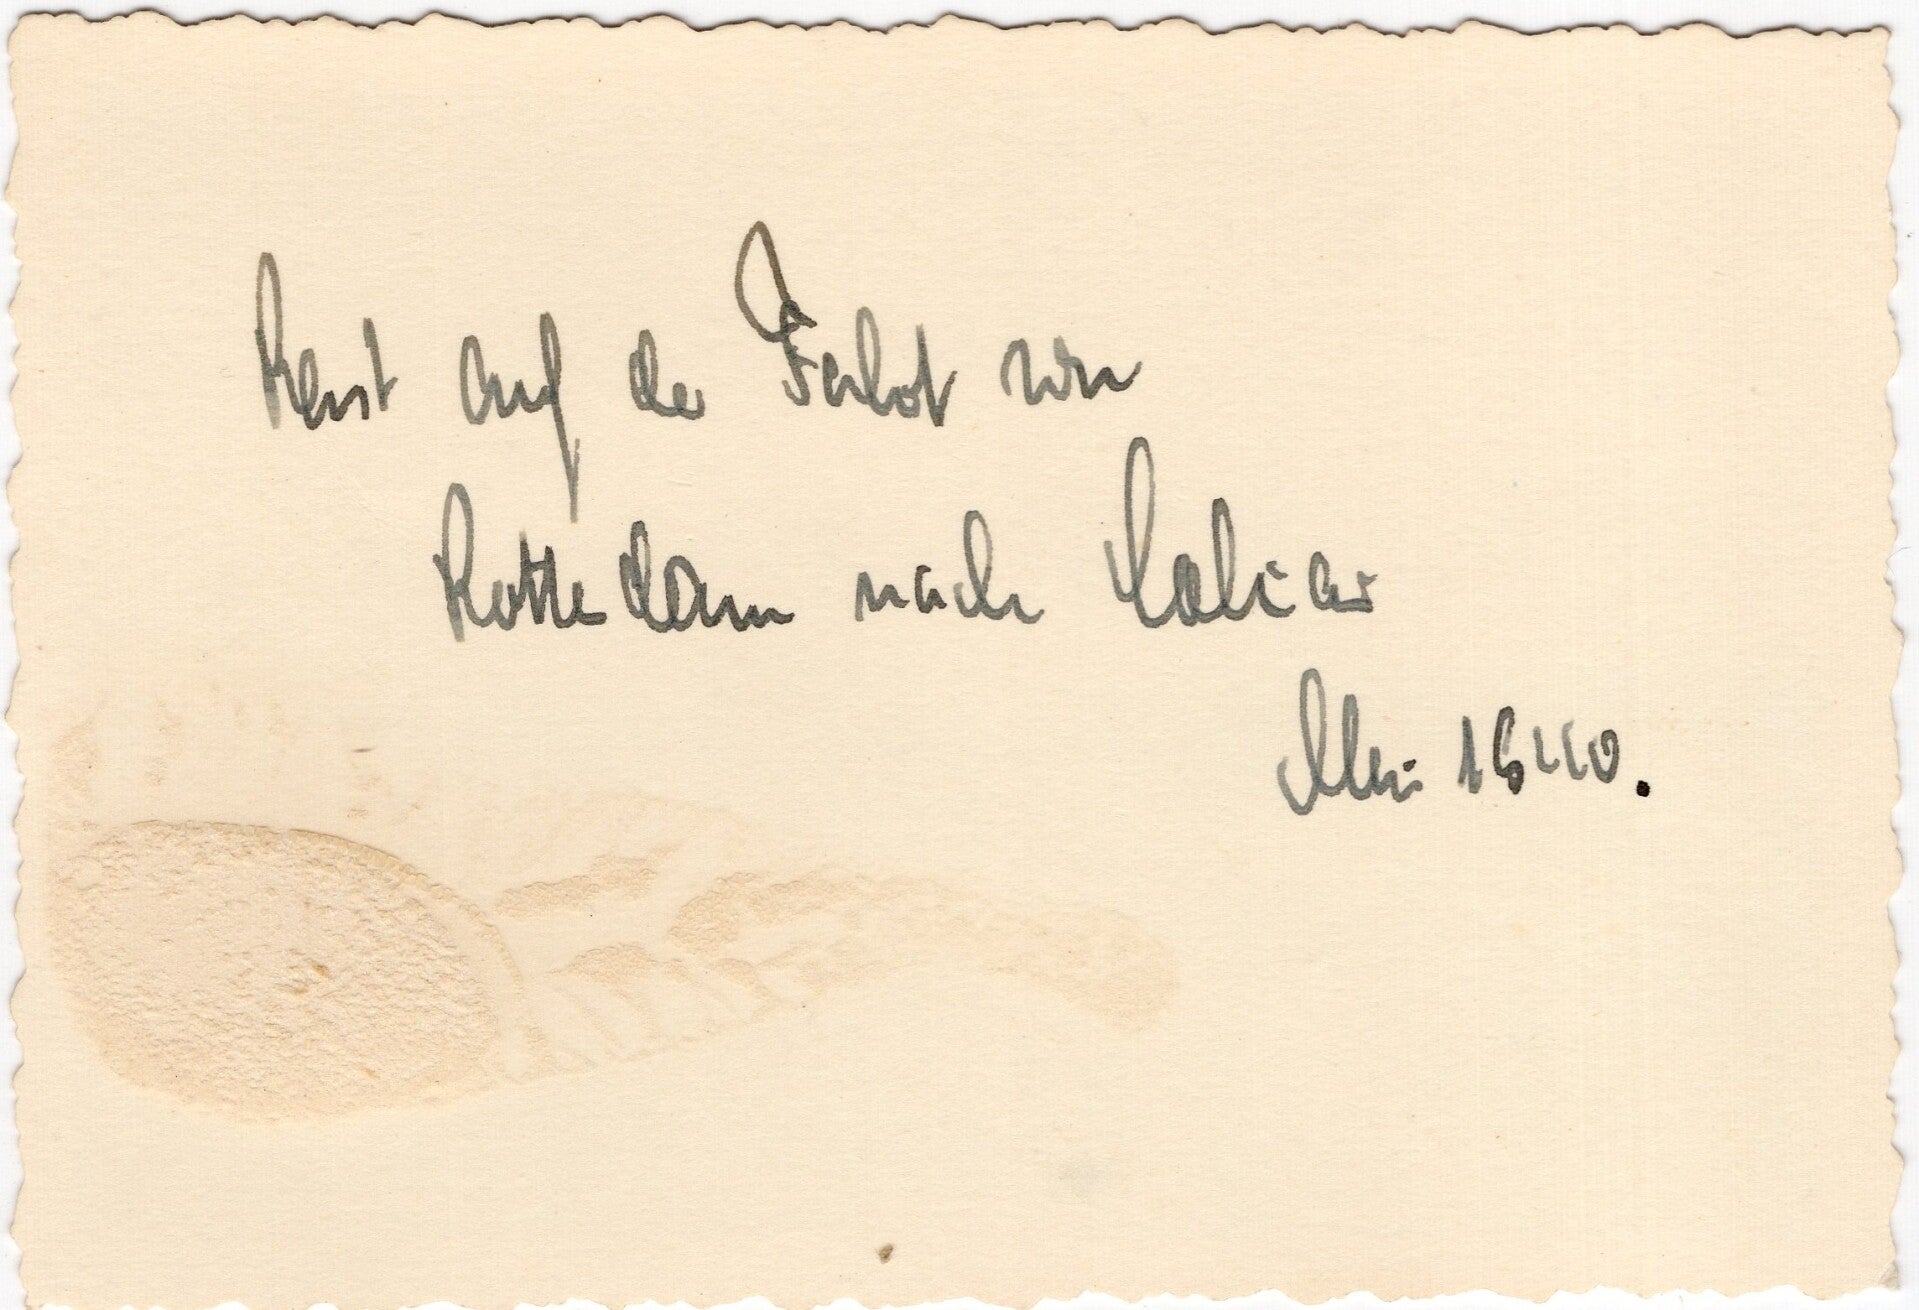 Rast auf der Fahrt von
Rotterdam nach
Mai 1940.